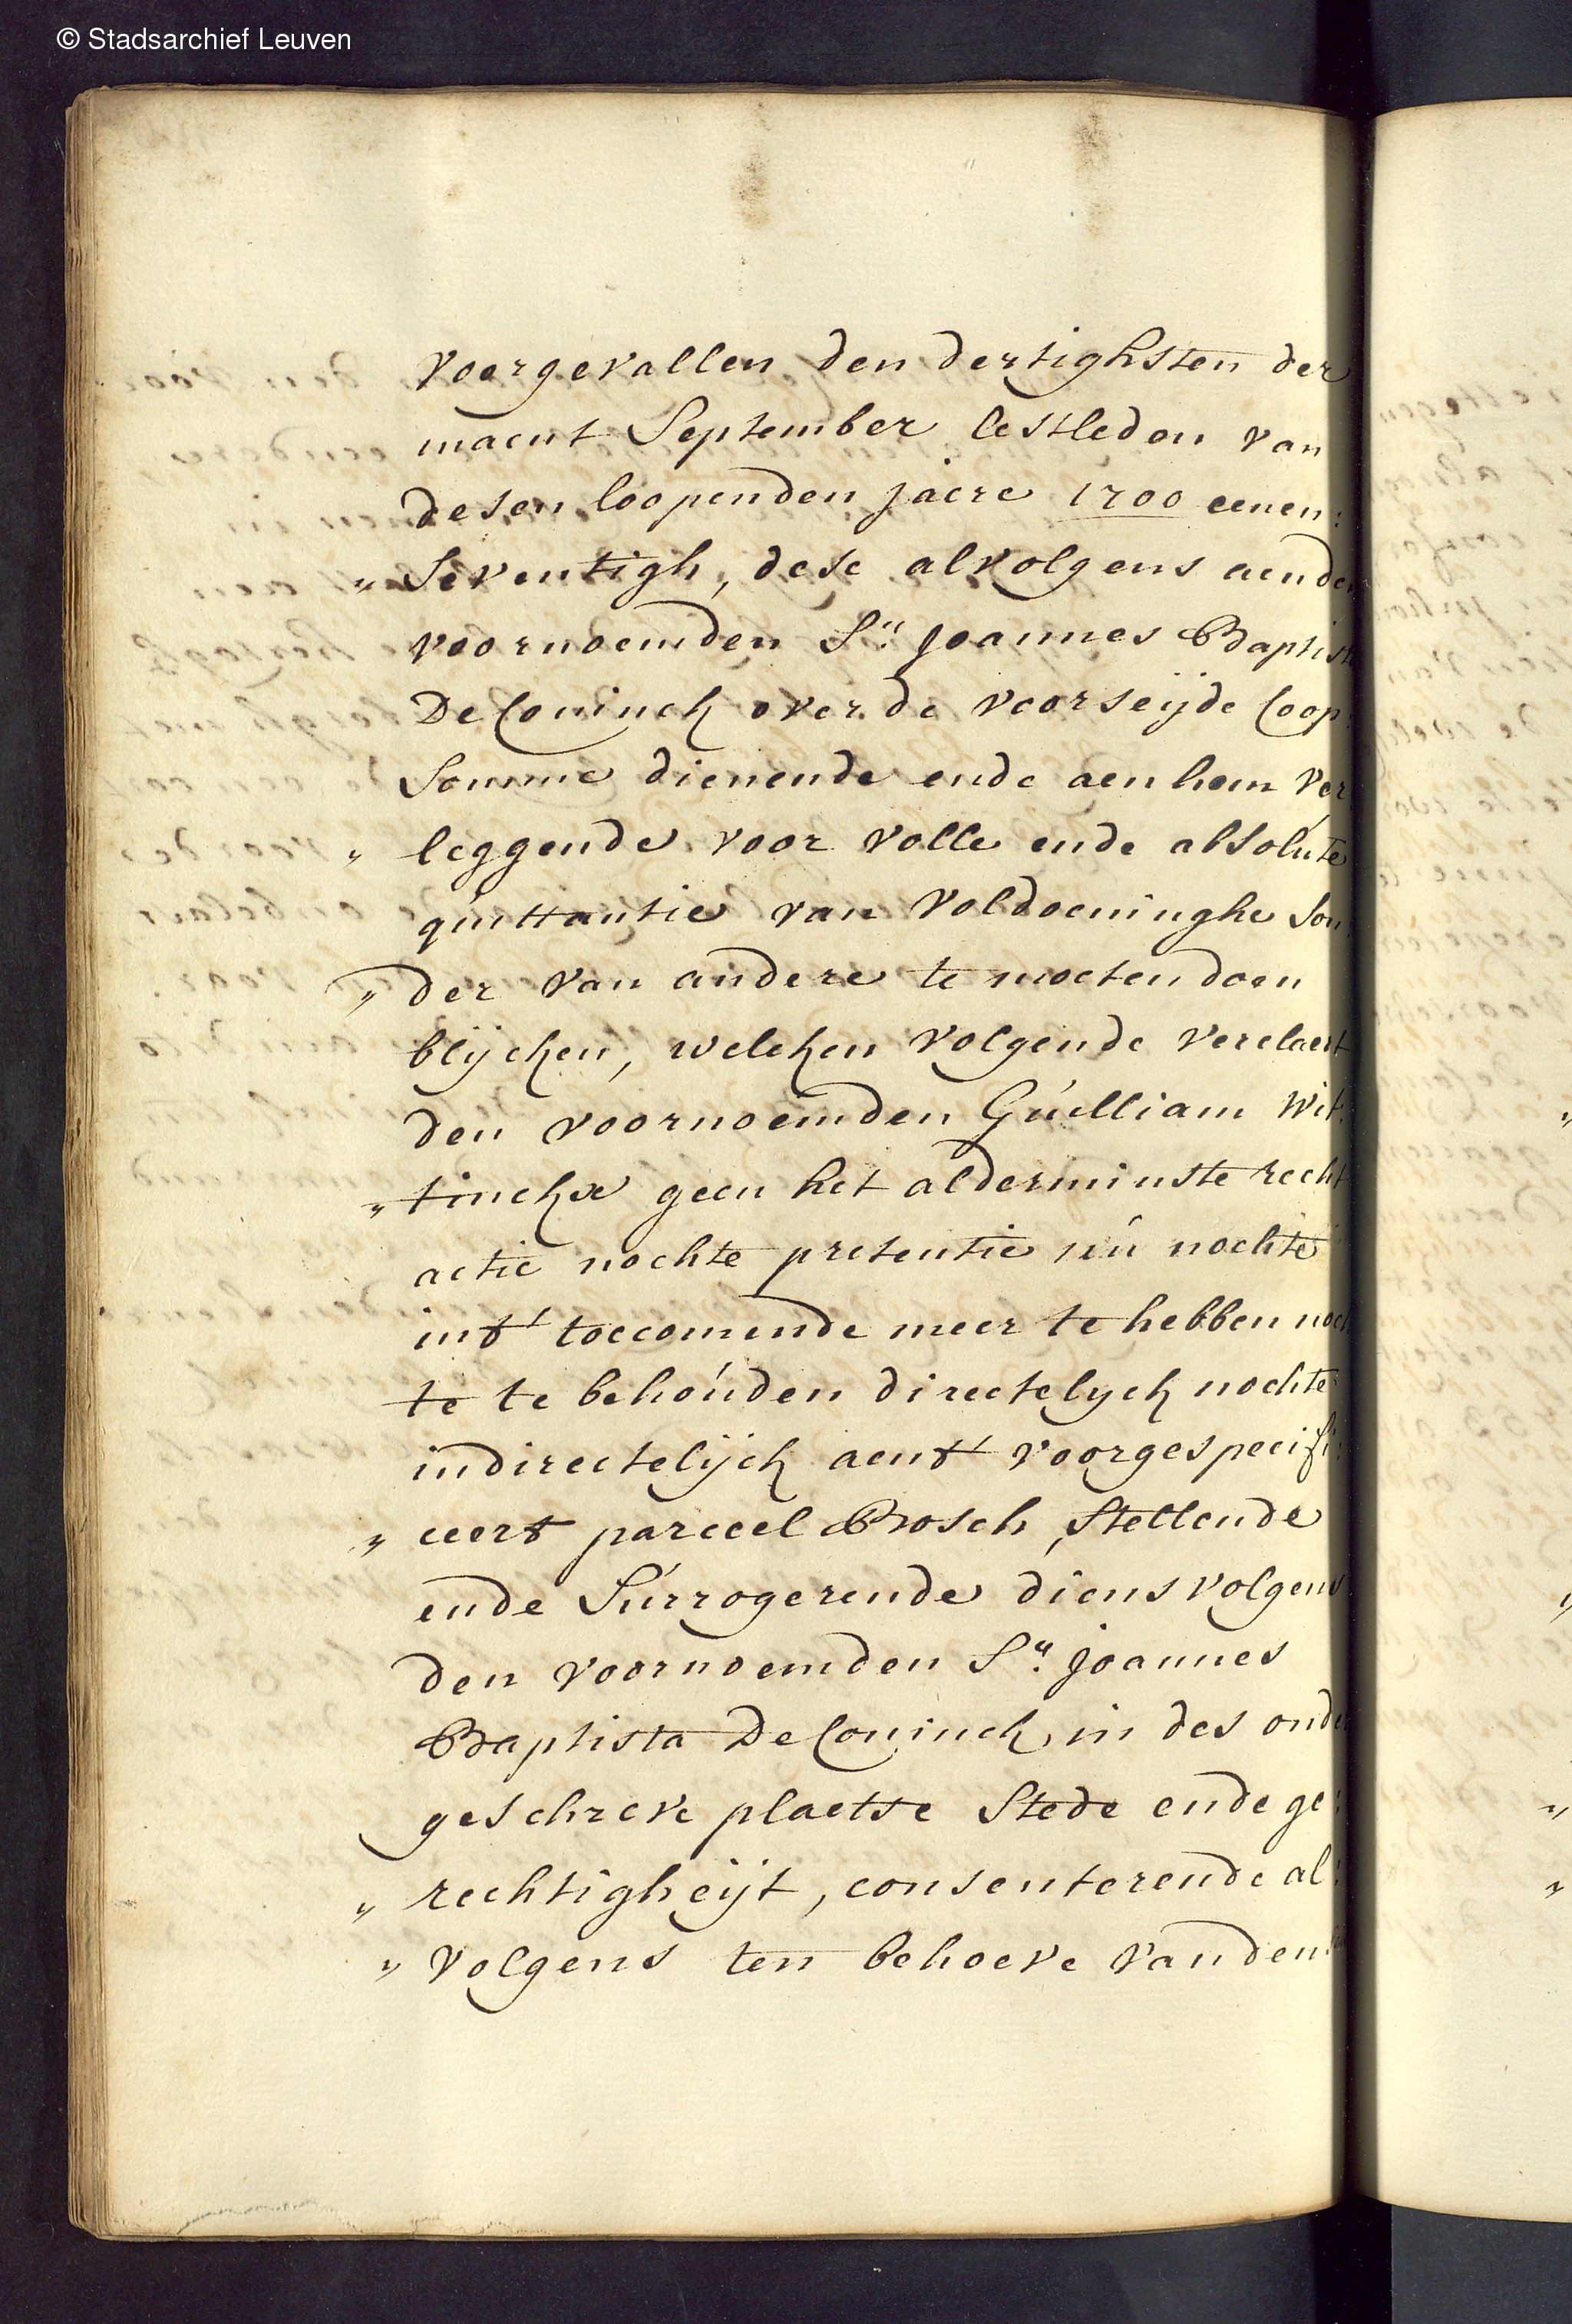 © Stadsarchief Leuven
voorgevallen den dertighsten der
maent September lestleden van
desen loopenden jaere 1700 eenen:
„ Seventigh, dese alvolgens aenden
voornoemden Sr. Joannes Baptista
De Coninck over de voorseijde Coop:
Somme dienende ende aen hem ver
„ leggende voor volle ende absolute
quittantie van voldoeninghe Son:
„ der van andere te moeten doen
blijcken, welcken volgende verclaert
den voornoemden Guilliam Wit:
„ tinckx geen het alderminste recht
actie nochte pretentie nú nochte
int' toecomende meer te hebben noch
te te behoúden directelyck nochte
indirectelijck aent' voorgespecifi:
„ ceert parceel Bosch, Stellende
ende Súrrogerende diensvolgens
den voornoemden Sr. Joannes
Baptista De Coninck in des onder
geschreve plaetse Stede ende ge:
„ rechtigheijt, consenterende al:
„ volgens ten behoeve vanden